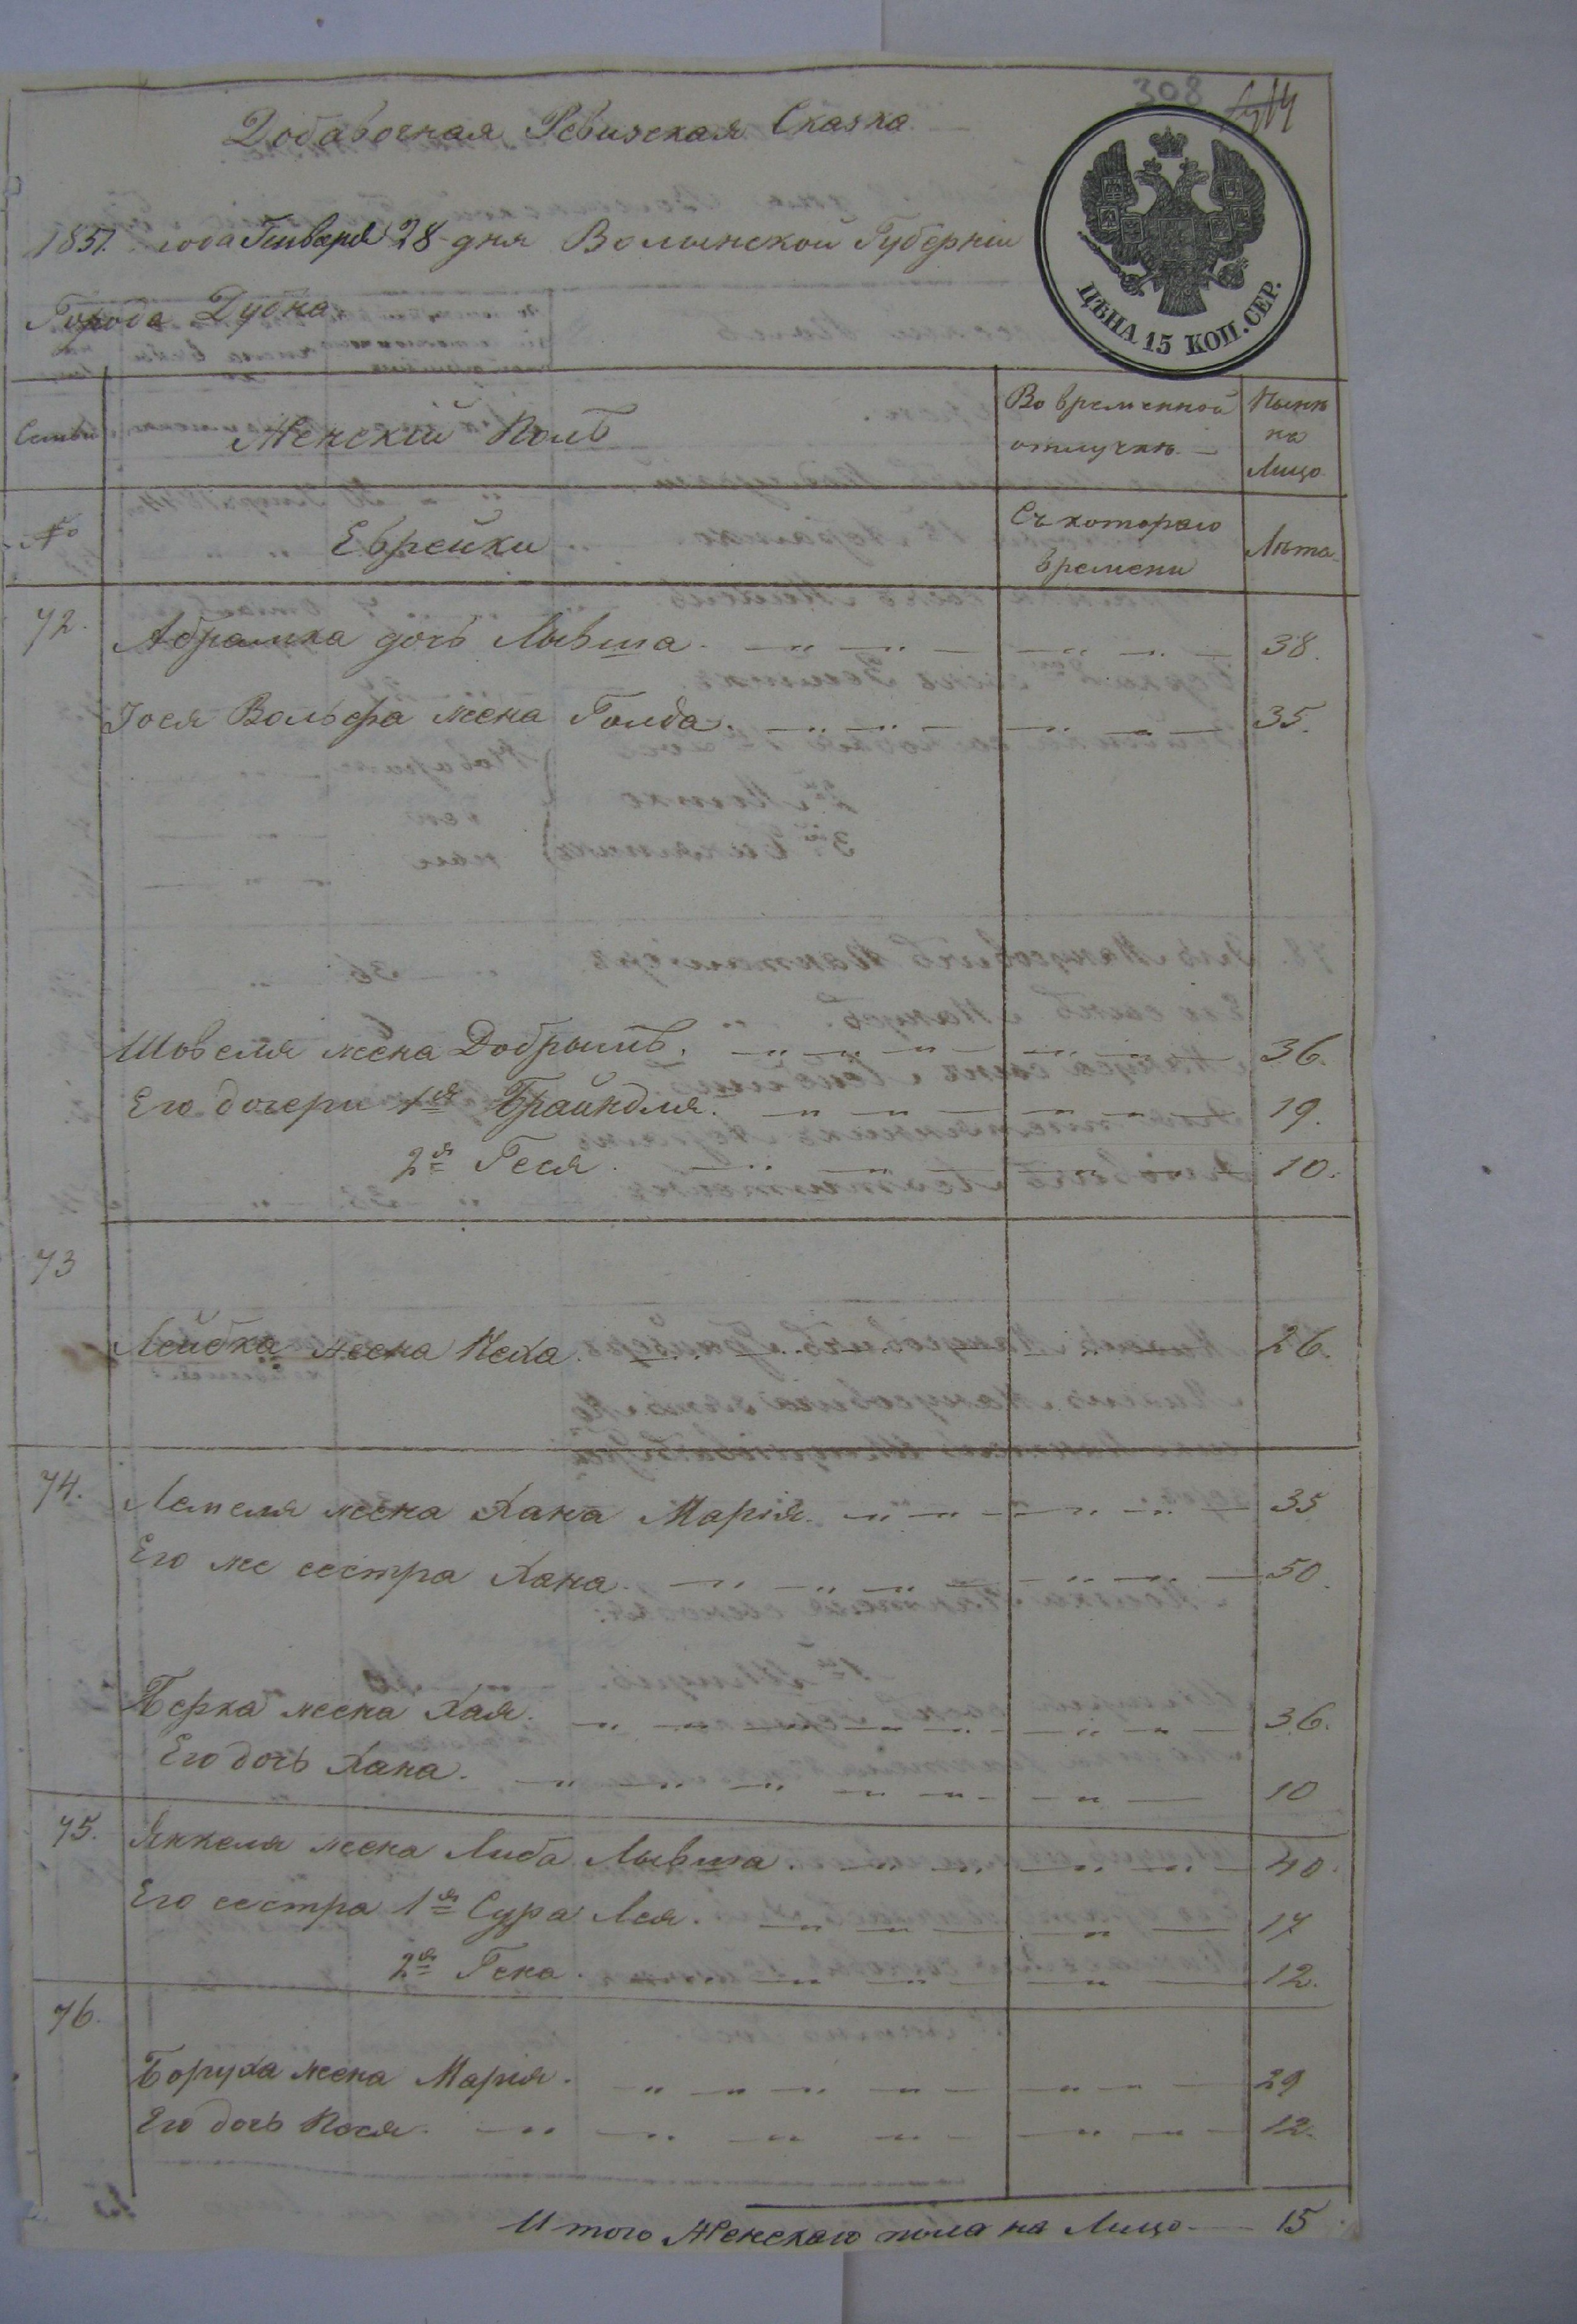 308
Добавочная Ревизская Сказка
1851 года Генваря 28 дня Волынской Губерніи
Города Дубна
ЦѢНА 15 КОП. СЕР.
Семьи Женскій Полъ Во временной отлучкѣ Нынѣ на Лицо
№ Еврейки Съ котораго времени Лѣта
72. Абрамка дочь Лывша 38.
Іося Вольфа жена Голда 35.
Шовеля жена Добрышъ. 36.
Его дочери 1я Брайндля. 19.
2я Геся. 10.
73
Лейбка жена Песя. 26.
74. Лемеля жена Хана Марія. 35
Его же сестра Хана. 50.
Берка жена Хая. 36.
Его дочь Хана. 10
75. Янкеля жена Либа Лывша. 40.
Его сестра 1я Сура Лея. 17
2я Гена. 12.
76.
Боруха жена Марія. 29
Его дочь Пося. 12.
Итого Женскаго пола на Лицо 15